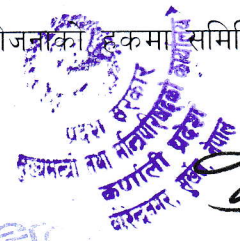 जनाको हकमा समिति
प्रदेश सरकार
मुख्यमन्त्री तथा मन्त्रिपरिषद्को कार्यालय
कर्णाली प्रदेश
वीरेन्द्रनगर, सुर्खेत, नेपाल